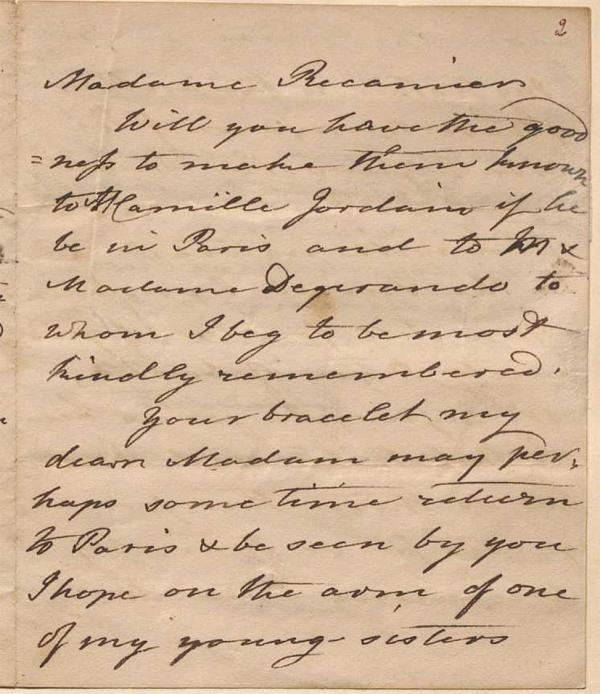 2
Madame Recamier
Will you have the good
=ness to make them known
to Camille Jordain if he
be in Paris and to M &
Madame Degerando to
whom I beg to be most
kindly remembered.
Your bracelet my
dear Madam may per-
haps some time return
to Paris & be seen by you
I hope on the arm of one
of my young sisters